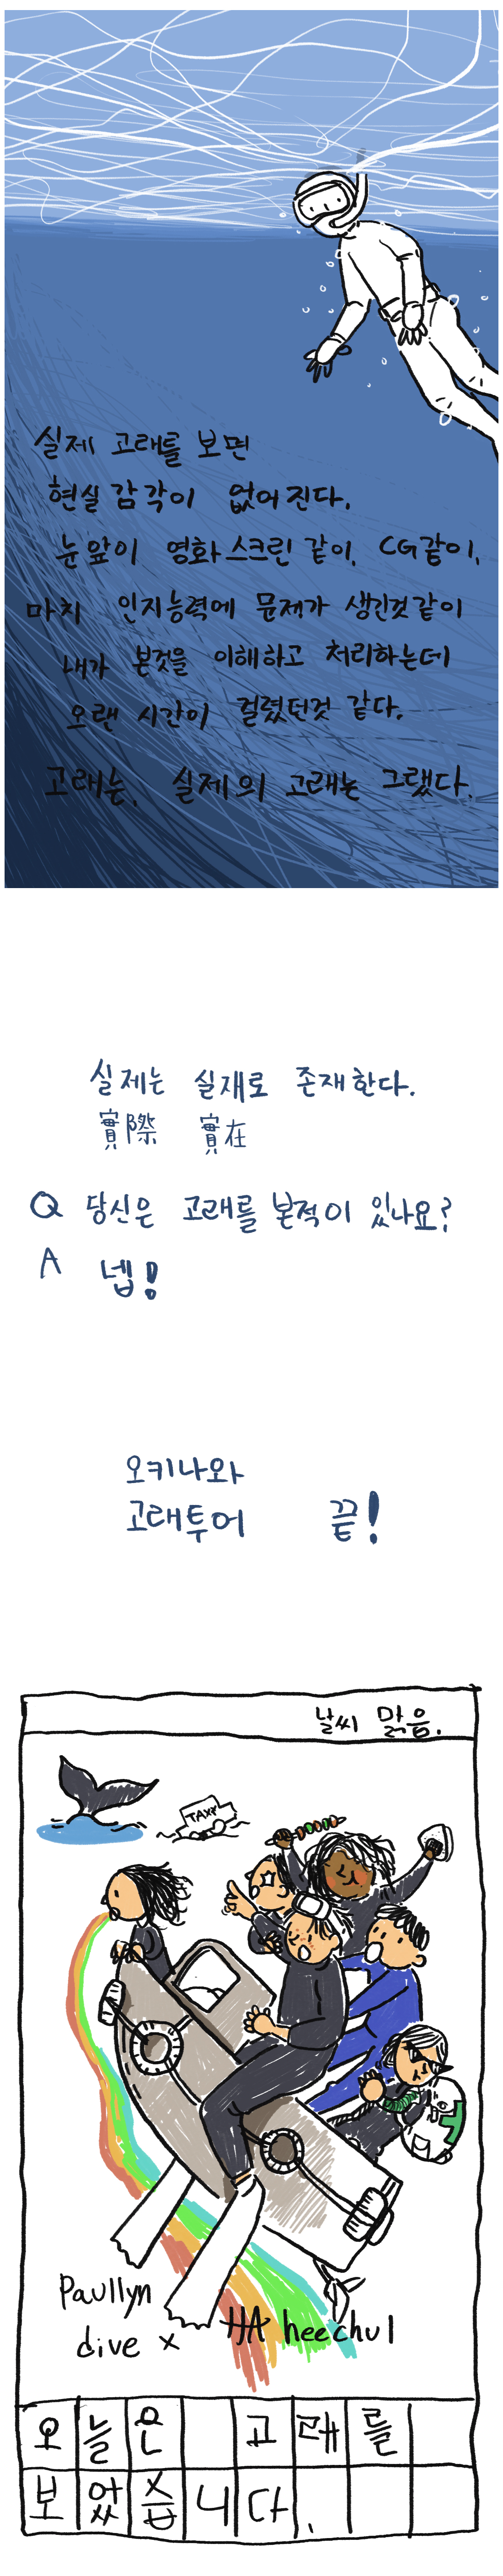 실제 고래를 보면
현실 감각이 없어진다.
눈앞이 영화스크린 같이, CG같이,
마치 인지능력에 문제가 생긴것같이
내가 본것을 이해하고 처리하는데
오랜 시간이 걸렸던것 같다.
고래는, 실제의 고래는 그랬다.
실제는 실재로 존재한다.
實際 實在
Q 당신은 고래를 본적이 있나요?
A 넵!
오키나와
고래투어 끝!
날씨 맑음.
TAXI
Paullyn
dive x HA heechul
오늘은 고래를
보았습니다.